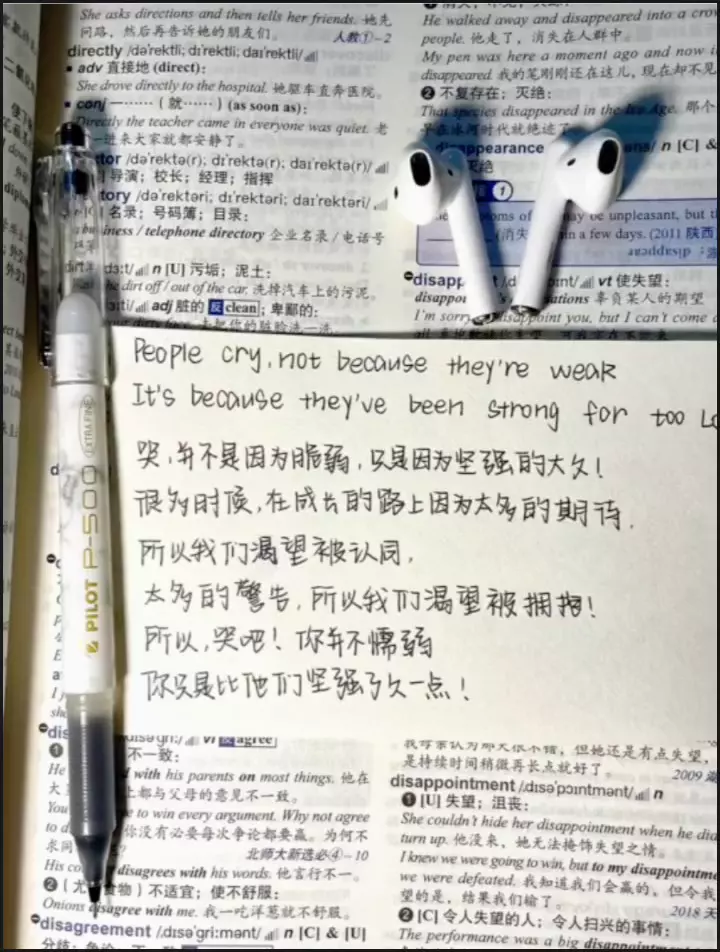 She asks directions and then tells her friends. 她先
问路，然后再告诉她的朋友们。 人教①-2
directly /dəˈrektli; dɪˈrektli; daɪˈrektli/
• adv 直接地 (direct)：
She drove directly to the hospital. 她驱车直奔医院。
• conj 一……（就……）(as soon as)：
Directly the teacher came in everyone was quiet. 老
一进来大家就都安静了。
tor /dəˈrektə(r); dɪˈrektə(r); daɪˈrektə(r)/
导演；校长；经理；指挥
tory /dəˈrektəri; dɪˈrektəri; daɪˈrektəri/
名录；号码簿；目录：
business / telephone directory 企业名录 / 电话号
n [U] 污垢；泥土：
the dirt off / out of the car. 洗掉汽车上的污泥。
adj 脏的 反 clean；卑鄙的：
He walked away and disappeared into a crow
people. 他走了，消失在人群中。
My pen was here a moment ago and now i
disappeared. 我的笔刚刚还在这儿，现在却不见
❷ 不复存在；灭绝：
That species disappeared in the Ice Age. 那个
早在冰河时代就绝迹了
disappearance n [C] &
灭绝
①
oms of may be unpleasant, but t
(消失 in a few days. (2011 陕西
disappea
disapp vt 使失望：
disappoi ations 辜负某人的期望
I'm sorry disappoint you, but I can't come
People cry, not because they're weak
It's because they've been strong for too Lo
哭，并不是因为脆弱，只是因为坚强的太久！
很多时候，在成长的路上因为太多的期待，
所以我们渴望被认同，
太多的警告，所以我们渴望被拥抱！
所以，哭吧！你并不懦弱
你只是比他们坚强了久一点！
PILOT P-500 EXTRA FINE
dis vi 反 agree
❶ 不一致：
He d with his parents on most things. 他在
大 上都与父母的意见不一致。
You e to win every argument. Why not agree
to d 你没有必要每次争论都要赢。为何不
求同
北师大新选必④-10
His co disagrees with his words. 他言行不一。
❷（尤 食物）不适宜；使不舒服：
Onions disagree with me. 我一吃洋葱就不舒服。
disagreement /ˌdɪsəˈɡriːmənt/ n [C] & [U]
我母亲认为那天很不错，但她还是有点失望，
是持续时间稍微再长点就好了。 2009
disappointment /ˌdɪsəˈpɔɪntmənt/ n
❶ [U] 失望；沮丧：
She couldn't hide her disappointment when he did
turn up. 他没来，她无法掩饰失望之情。
I knew we were going to win, but to my disappointme
we were defeated. 我知道我们会赢的，但令我
望的是，结果我们输了。 2018 天
❷ [C] 令人失望的人；令人扫兴的事情：
The performance was a big disappointment